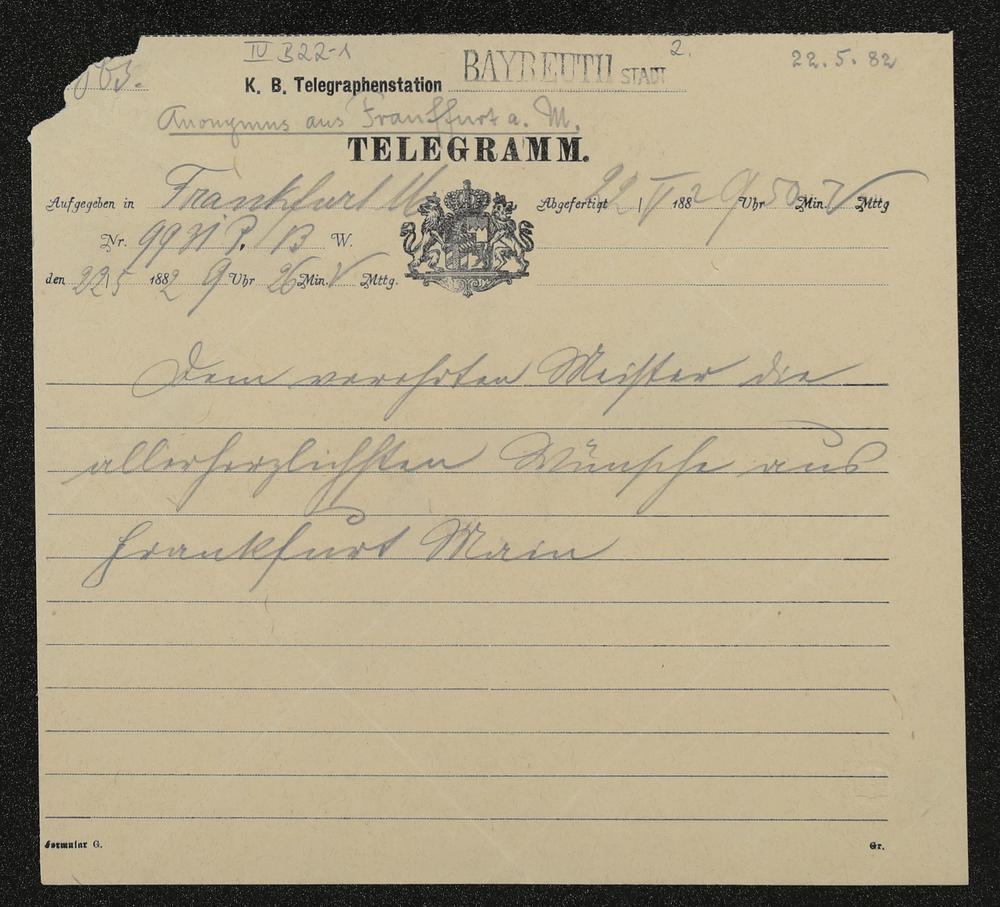 IV B 22-1
2.
22.5.82
K. B. Telegraphenstation BAYREUTH STADT
Anonymus aus Frankfurt a. M.
TELEGRAMM.
Aufgegeben in Frankfurt M Abgefertigt 22/V 1882 9 Uhr 50 Min. V Mttg
Nr. W.
den 22/5 1882 9 Uhr 26 Min. V Mttg.
Dem verehrten Meister die
allerherzlichsten Wünsche aus
Frankfurt Main
Formular G. Gr.